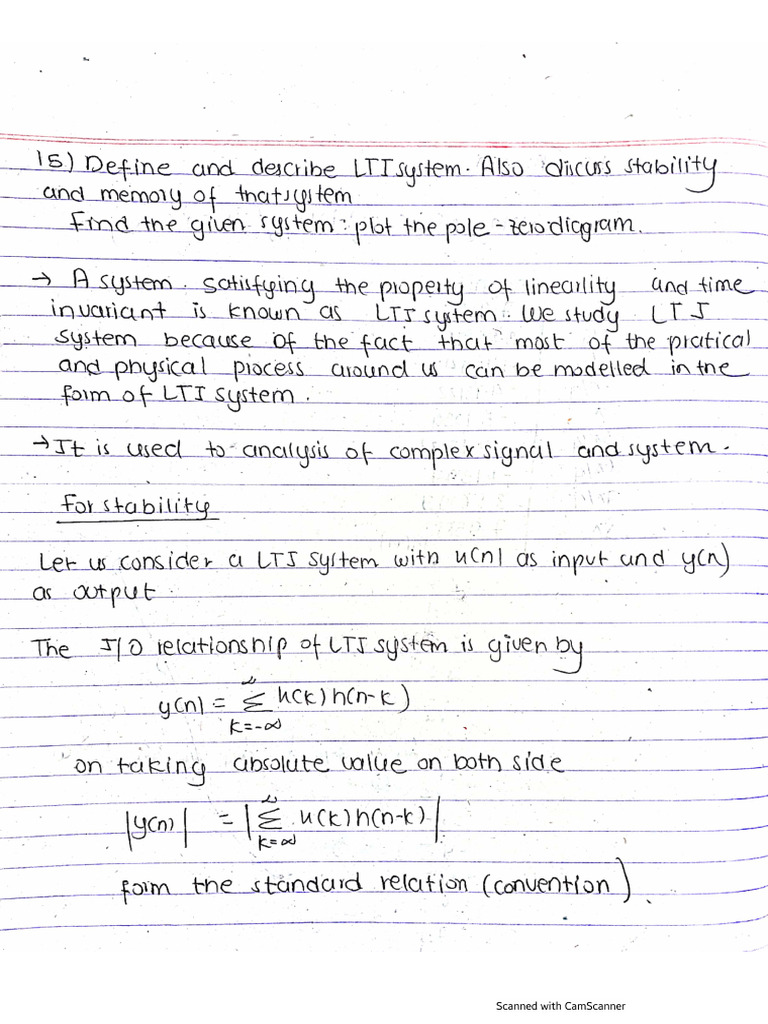 15) Define and describe LTI system. Also discuss stability
and memory of that system
Find the given system : plot the pole - zero diagram.
→ A system satisfying the property of linearility and time
invariant is known as LTI system. We study LTI
system because of the fact that most of the pratical
and physical process around us can be modelled in the
form of LTI system.
→ It is used to analysis of complex signal and system.
For stability
Let us consider a LTI system with x(n) as input and y(n)
as output.
The I/O relationship of LTI system is given by
y(n) = ∑ x(k) h(n-k)
k=-∞
on taking absolute value on both side
|y(n)| = |∑ x(k) h(n-k)|
k=∞
form the standard relation (convention).
Scanned with CamScanner